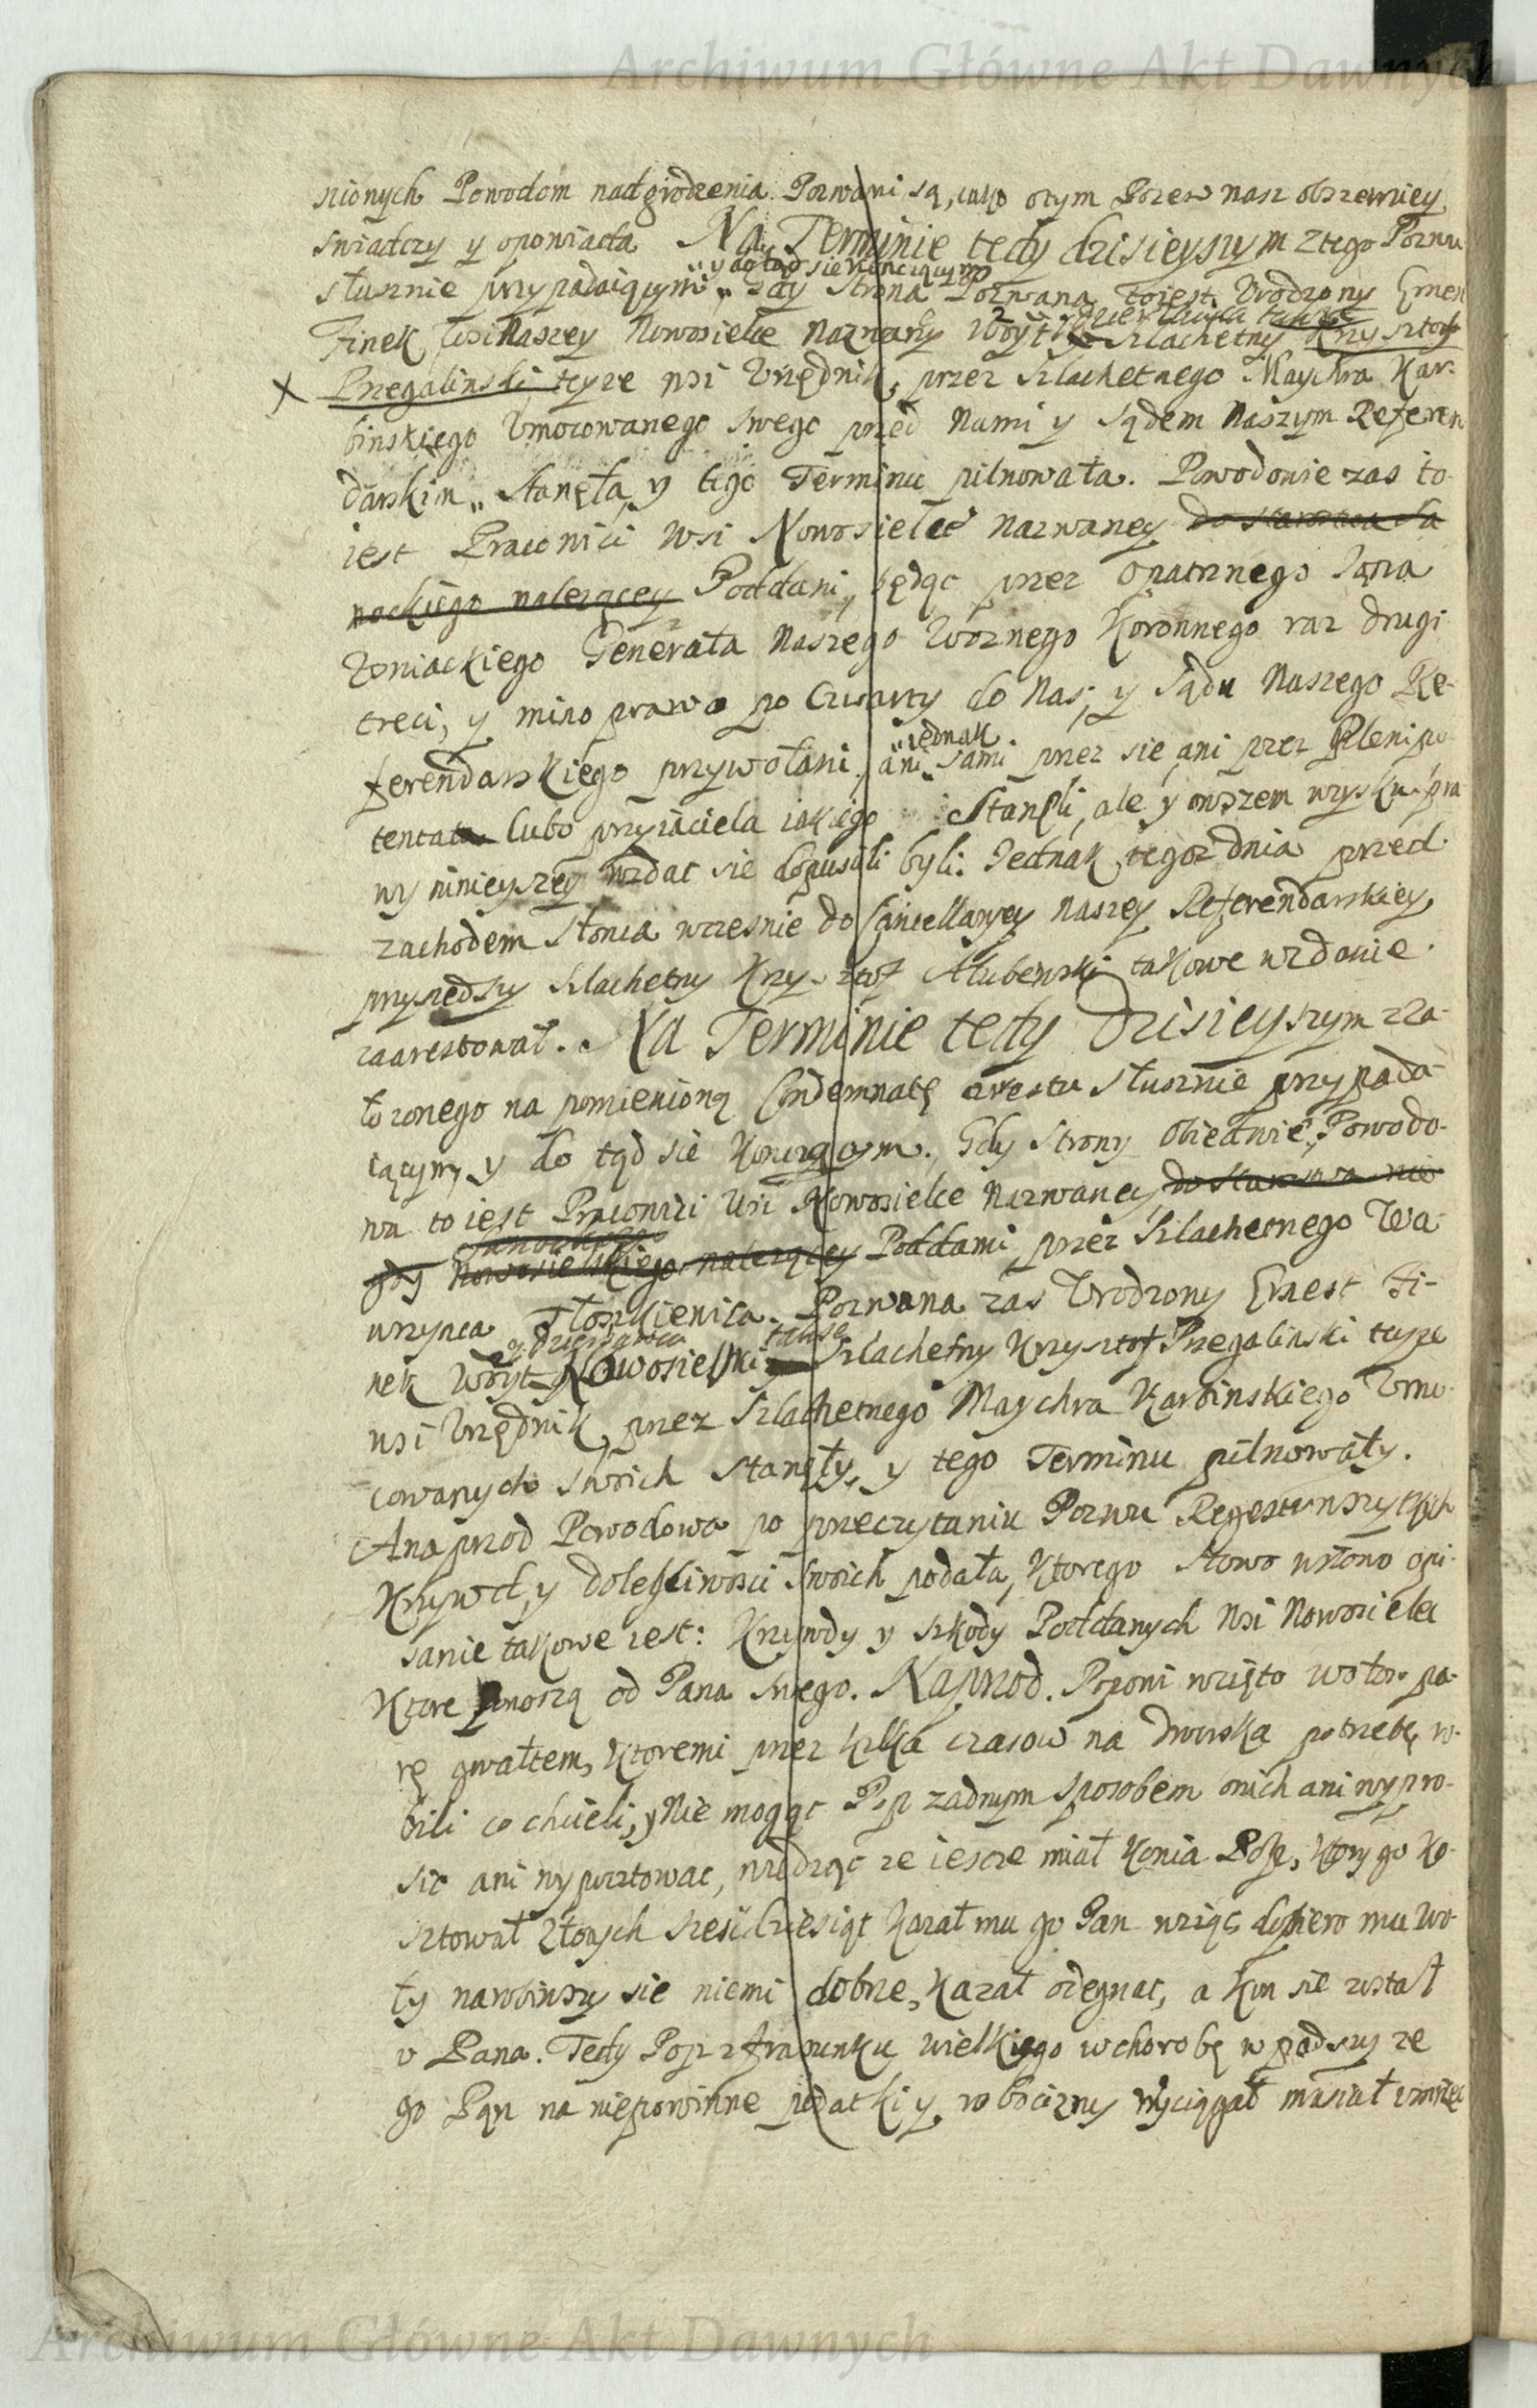 Archiwum Główne Akt Dawnych
nionych Powodom nadgrodzenia Pozwani są, iako otym Pozew nasz obszerniey
swiadczy y opowiada Na Terminie tedy dzisieyszym z tego Pozwu
y do tąd sie kończącym
słusznie przypadaiącym, gdy Strona Pozwana toiest Urodzony Ernest
y dzierzawca także
Finek wsi Naszey Nowosielce Nazwany Woyt Szlachetny Krysztoff
Przegalinski teyze wsi Urzędnik, przez Szlachetnego Maychra Kar-
binskiego Umocowanego swego przed Nami y Sądem Naszym Referen
darskim, Stanęła, y tego Terminu pilnowała. Powodowie zas to
iest Pracowici wsi Nowosielce nazwaney do Starostwa Sa
nockiego nalezącey Poddani, będąc przez Opatrznego Jana
Woniackiego Generała Naszego Woznego Koronnego raz drugi
trzeci, y mimo prawo po Czwarty do Nas, y Sądu Naszego Re-
iednak
ferendarskiego przywołani, ani sami przez sie ani przez Plenipo
tentata lubo przyiaciela iakiego Stanęli, ale y owszem w zysku spra
wy ninieyszey wzdac sie dopuscili byli. Jednak tegoz dnia przed
zachodem słonca wczesnie do Cancellaryey Naszey Referendarskiey
przyszedszy Szlachetny Krysztof Ałubenski takowe wzdanie
zaarestował. Na Terminie tedy Dzisieyszym z za-
łozonego na pomienioną Condemnatę arestu słusznie przypada-
iącym, y do tąd sie kończącym. Gdy Strony obiedwie, Powodo-
wa to iest Pracowici wsi Nowosielce Nazwaney do Starostwa nie
Sanockiego
gdy Nowosielskiego nalezącey Poddani, przez Szlachetnego Wa-
wrzynca Tłoszkiewica. Pozwana zas Urodzony Ernest Fi-
y dzierzawca także
nek Woyt Nowosielski Szlachetny Krysztof Przegalinski teyze
wsi Urzędnik, przez Szlachetnego Maychra Karbinskiego Umo-
cowanych swoich stanęły, y tego Terminu pilnowały.
A naprzod Powodowa po przeczytaniu Pozwu Regestr wszytkich
Krzywd, y dolegliwosci swoich podała, ktorego słowo w słowo opi-
sanie takowe iest: Krzywdy y szkody Poddanych wsi Nowosielec
Ktore ponoszą od Pana swego. Naprzod. Poponi wzięto wołow pa-
rę gwałtem, ktoremi przez kilka czasow na dworska potrzebę ro-
bili co chcieli, y Nie mogąc Pop zadnym sposobem onich ani wypro-
sic ani wyportowac, widząc ze iescze miał konia Pop, ktory go ko-
sztował złotych szescdziesiąt kazał mu go Pan wziąc dopiero mu wo-
ły narobiwszy sie niemi dobrze, kazał odegnac, a kon sie został
u Pana. Tedy Pop z frasunku wielkiego w chorobę wpadszy ze
go Pan na niepowinne podatki y robocizny wyciągał musiał umrzec
Archiwum Główne Akt Dawnych